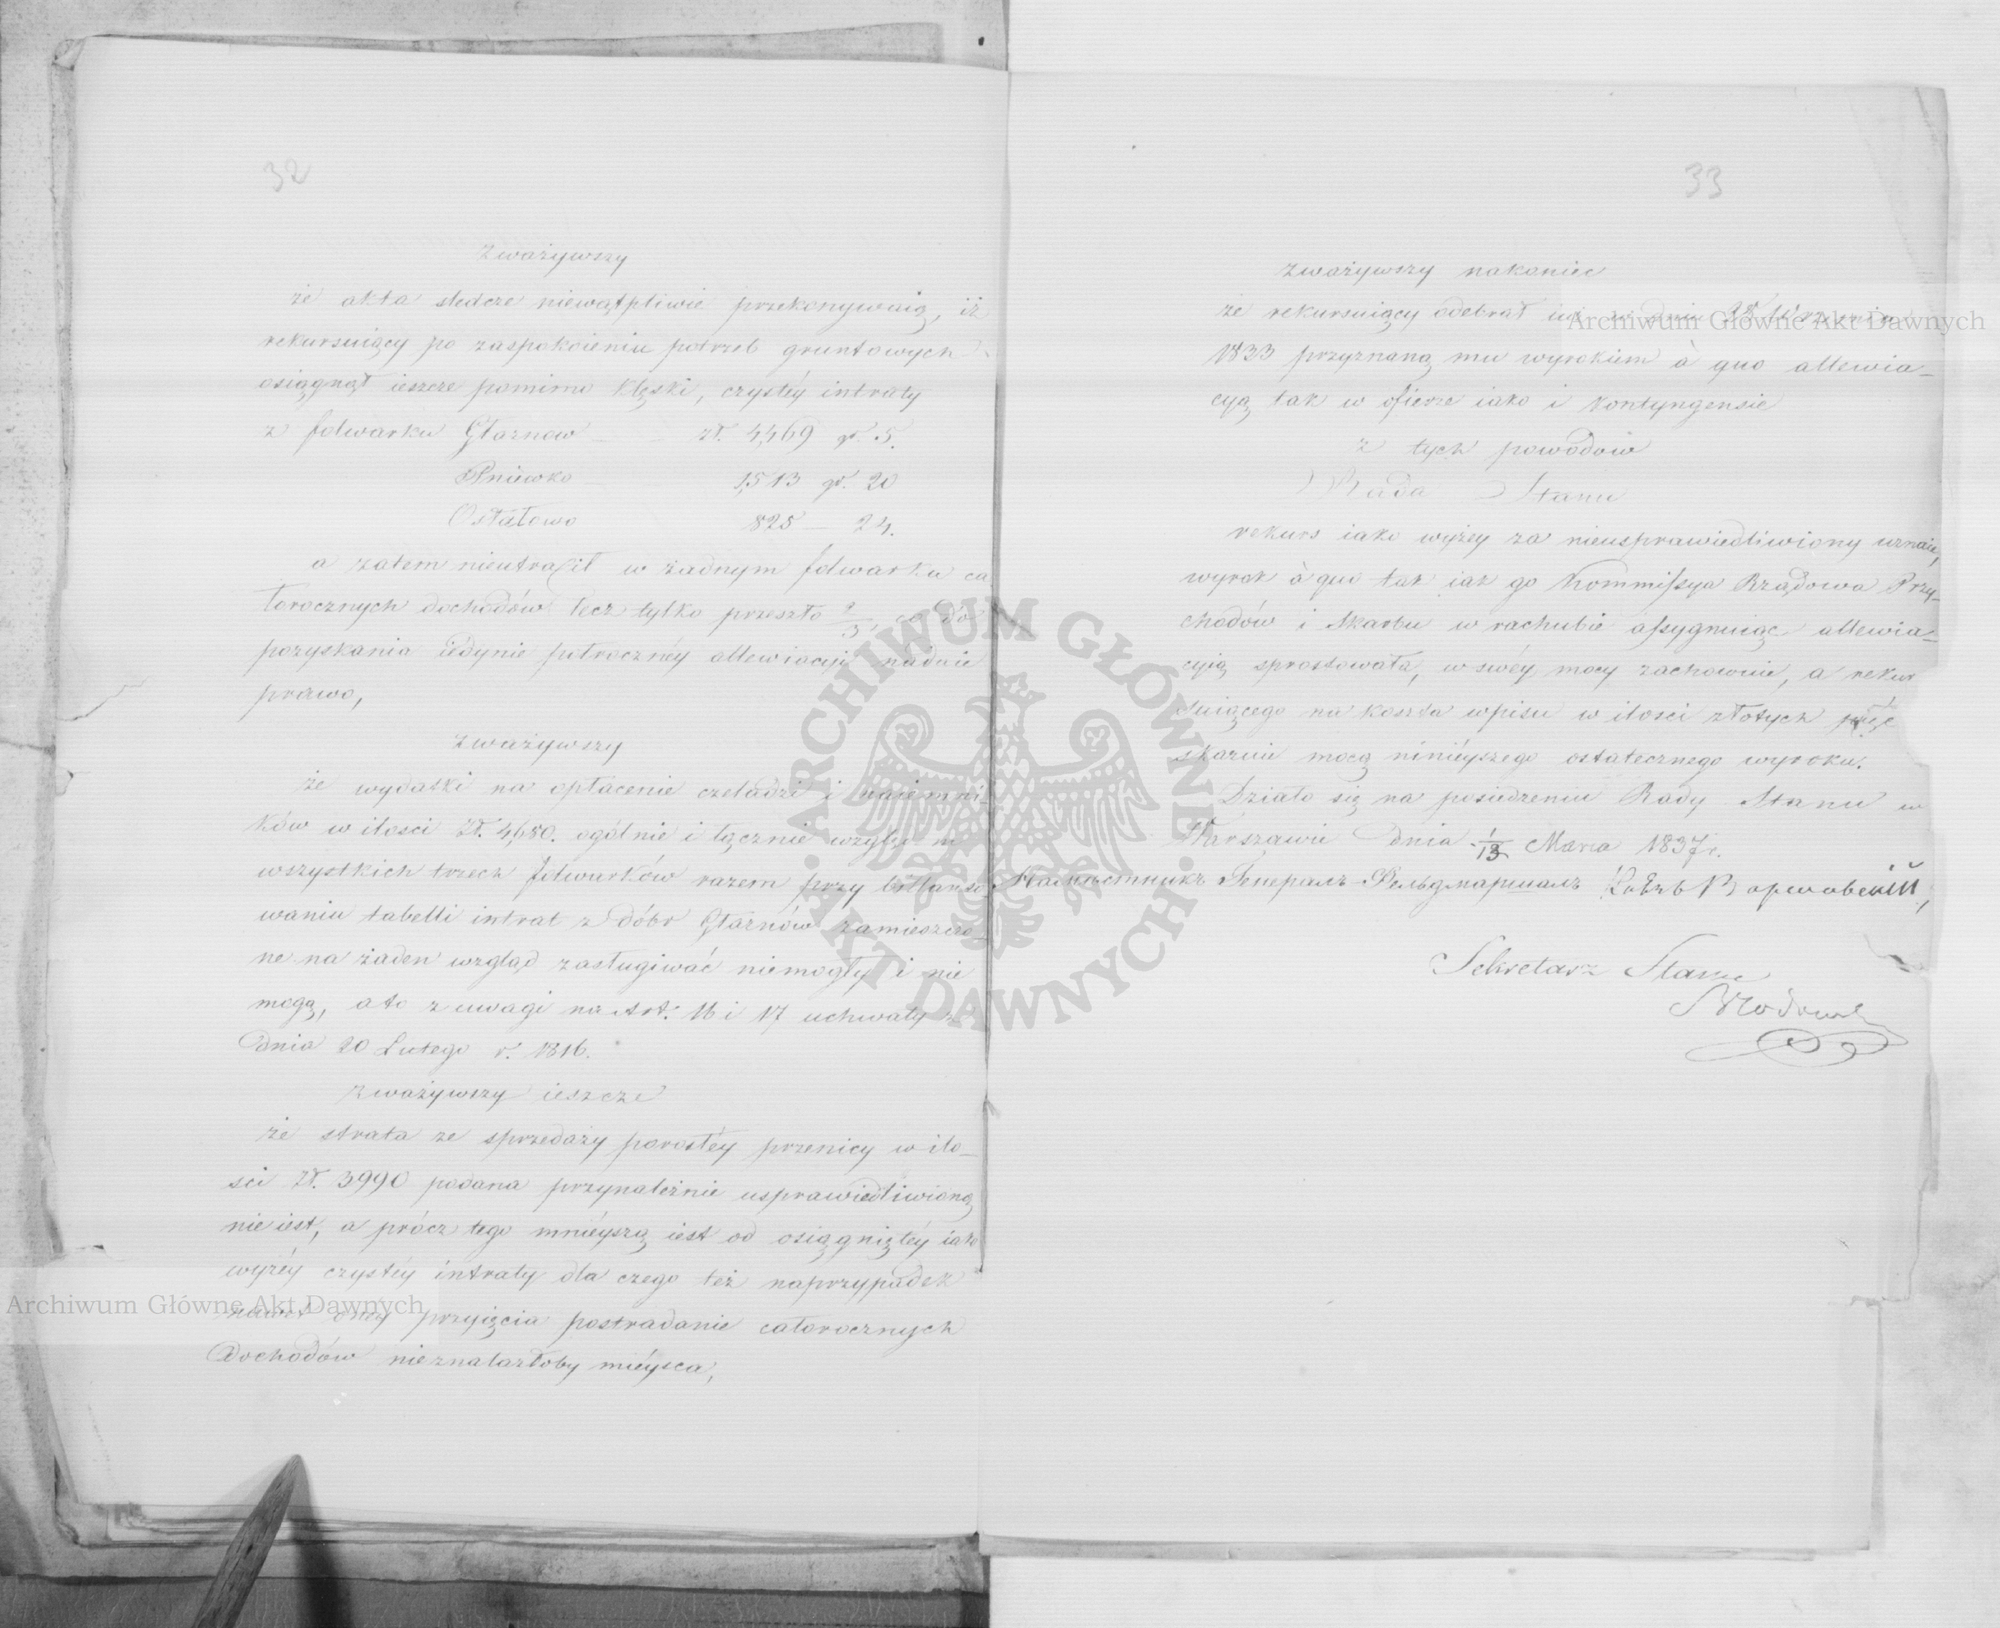 32
Zważywszy
że akta śledcze niewątpliwie przekonywaią, iż
rekursuiący po zaspokoieniu potrzeb gruntowych
osiągnął ieszcze pomimo klęski, czystéy intraty
z folwarku Głaznow zł. 4,469 gr. 5.
Pniewko 1,513 gr. 20
Ostałowo 825 — 24.
a zatem nieutracił w żadnym folwarku ca
łorocznych dochodów lecz tylko przeszło 2/3, co dó
pozyskania iedynie półrocznéy allewiacyi nadaie
prawo,
zważywszy
że wydatki na opłacenie czeladzi i naiemni
ków w ilości Zł. 4,680. ogólnie i łącznie wzięte
wszystkich trzech folwarków razem przy billanso
waniu tabelli intrat z dóbr Głaznów zamieszczo
ne na żaden wzgląd zasługiwać niemogły i nie
mogą, a to z uwagi na Art. 16 i 17 uchwały z
dnia 20 Lutego r. 1816.
zważywszy ieszcze
że strata ze sprzedaży porosłéy przenicy w ilo_
ści Zł. 3990 podana przynależnie usprawiedliwioną
nie iest, a prócz tego mniéyszą iest od osiągniętéy iako
wyżéy czystéy intraty dla czego też naprzypadek
nawet onéy przyięcia postradanie całorocznych
dochodów nieznalazłoby mieysca,
33
zważywszy nakoniec
że rekursuiący odebrał iuż w dniu 28 Września
1833 przyznaną mu wyrokiem à quo allewia_
cyą tak w ofierze iako i kontyngensie
z tych powodów
Rada Stanu
rekurs iako wyżey za nieusprawiedliwiony uznaie,
wyrok à quo tak iak go Kommissya Rządowa Przy_
chodów i Skarbu w rachubie assygnuiąc allewia_
cyią sprostowała, w swéy mocy zachowuie, a rekur
suiącego na koszta wpisu w ilości złotych pięć
skazuie mocą ninieyszego ostatecznego wyroku.
Działo się na posiedzeniu Rady Stanu w
Warszawie dnia 1/13 Marca 1837 r.
Намѣстникъ Генералъ-Фельдмаршалъ Князь Варшавскій,
Sekretarz Stanu
Archiwum Główne Akt Dawnych
Archiwum Główne Akt Dawnych
ARCHIWUM GŁÓWNE · AKT DAWNYCH ·